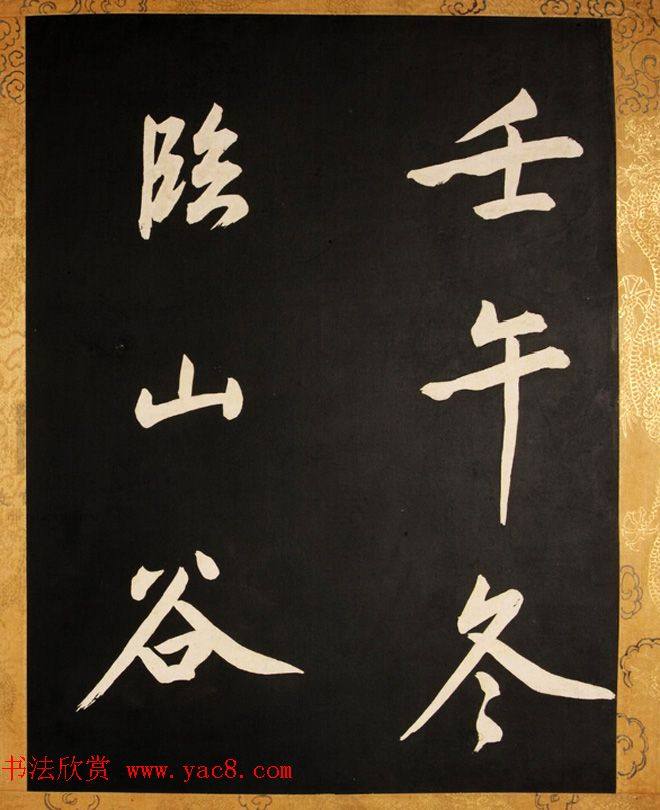 壬午冬
臨山谷
书法欣赏 www.yac8.com